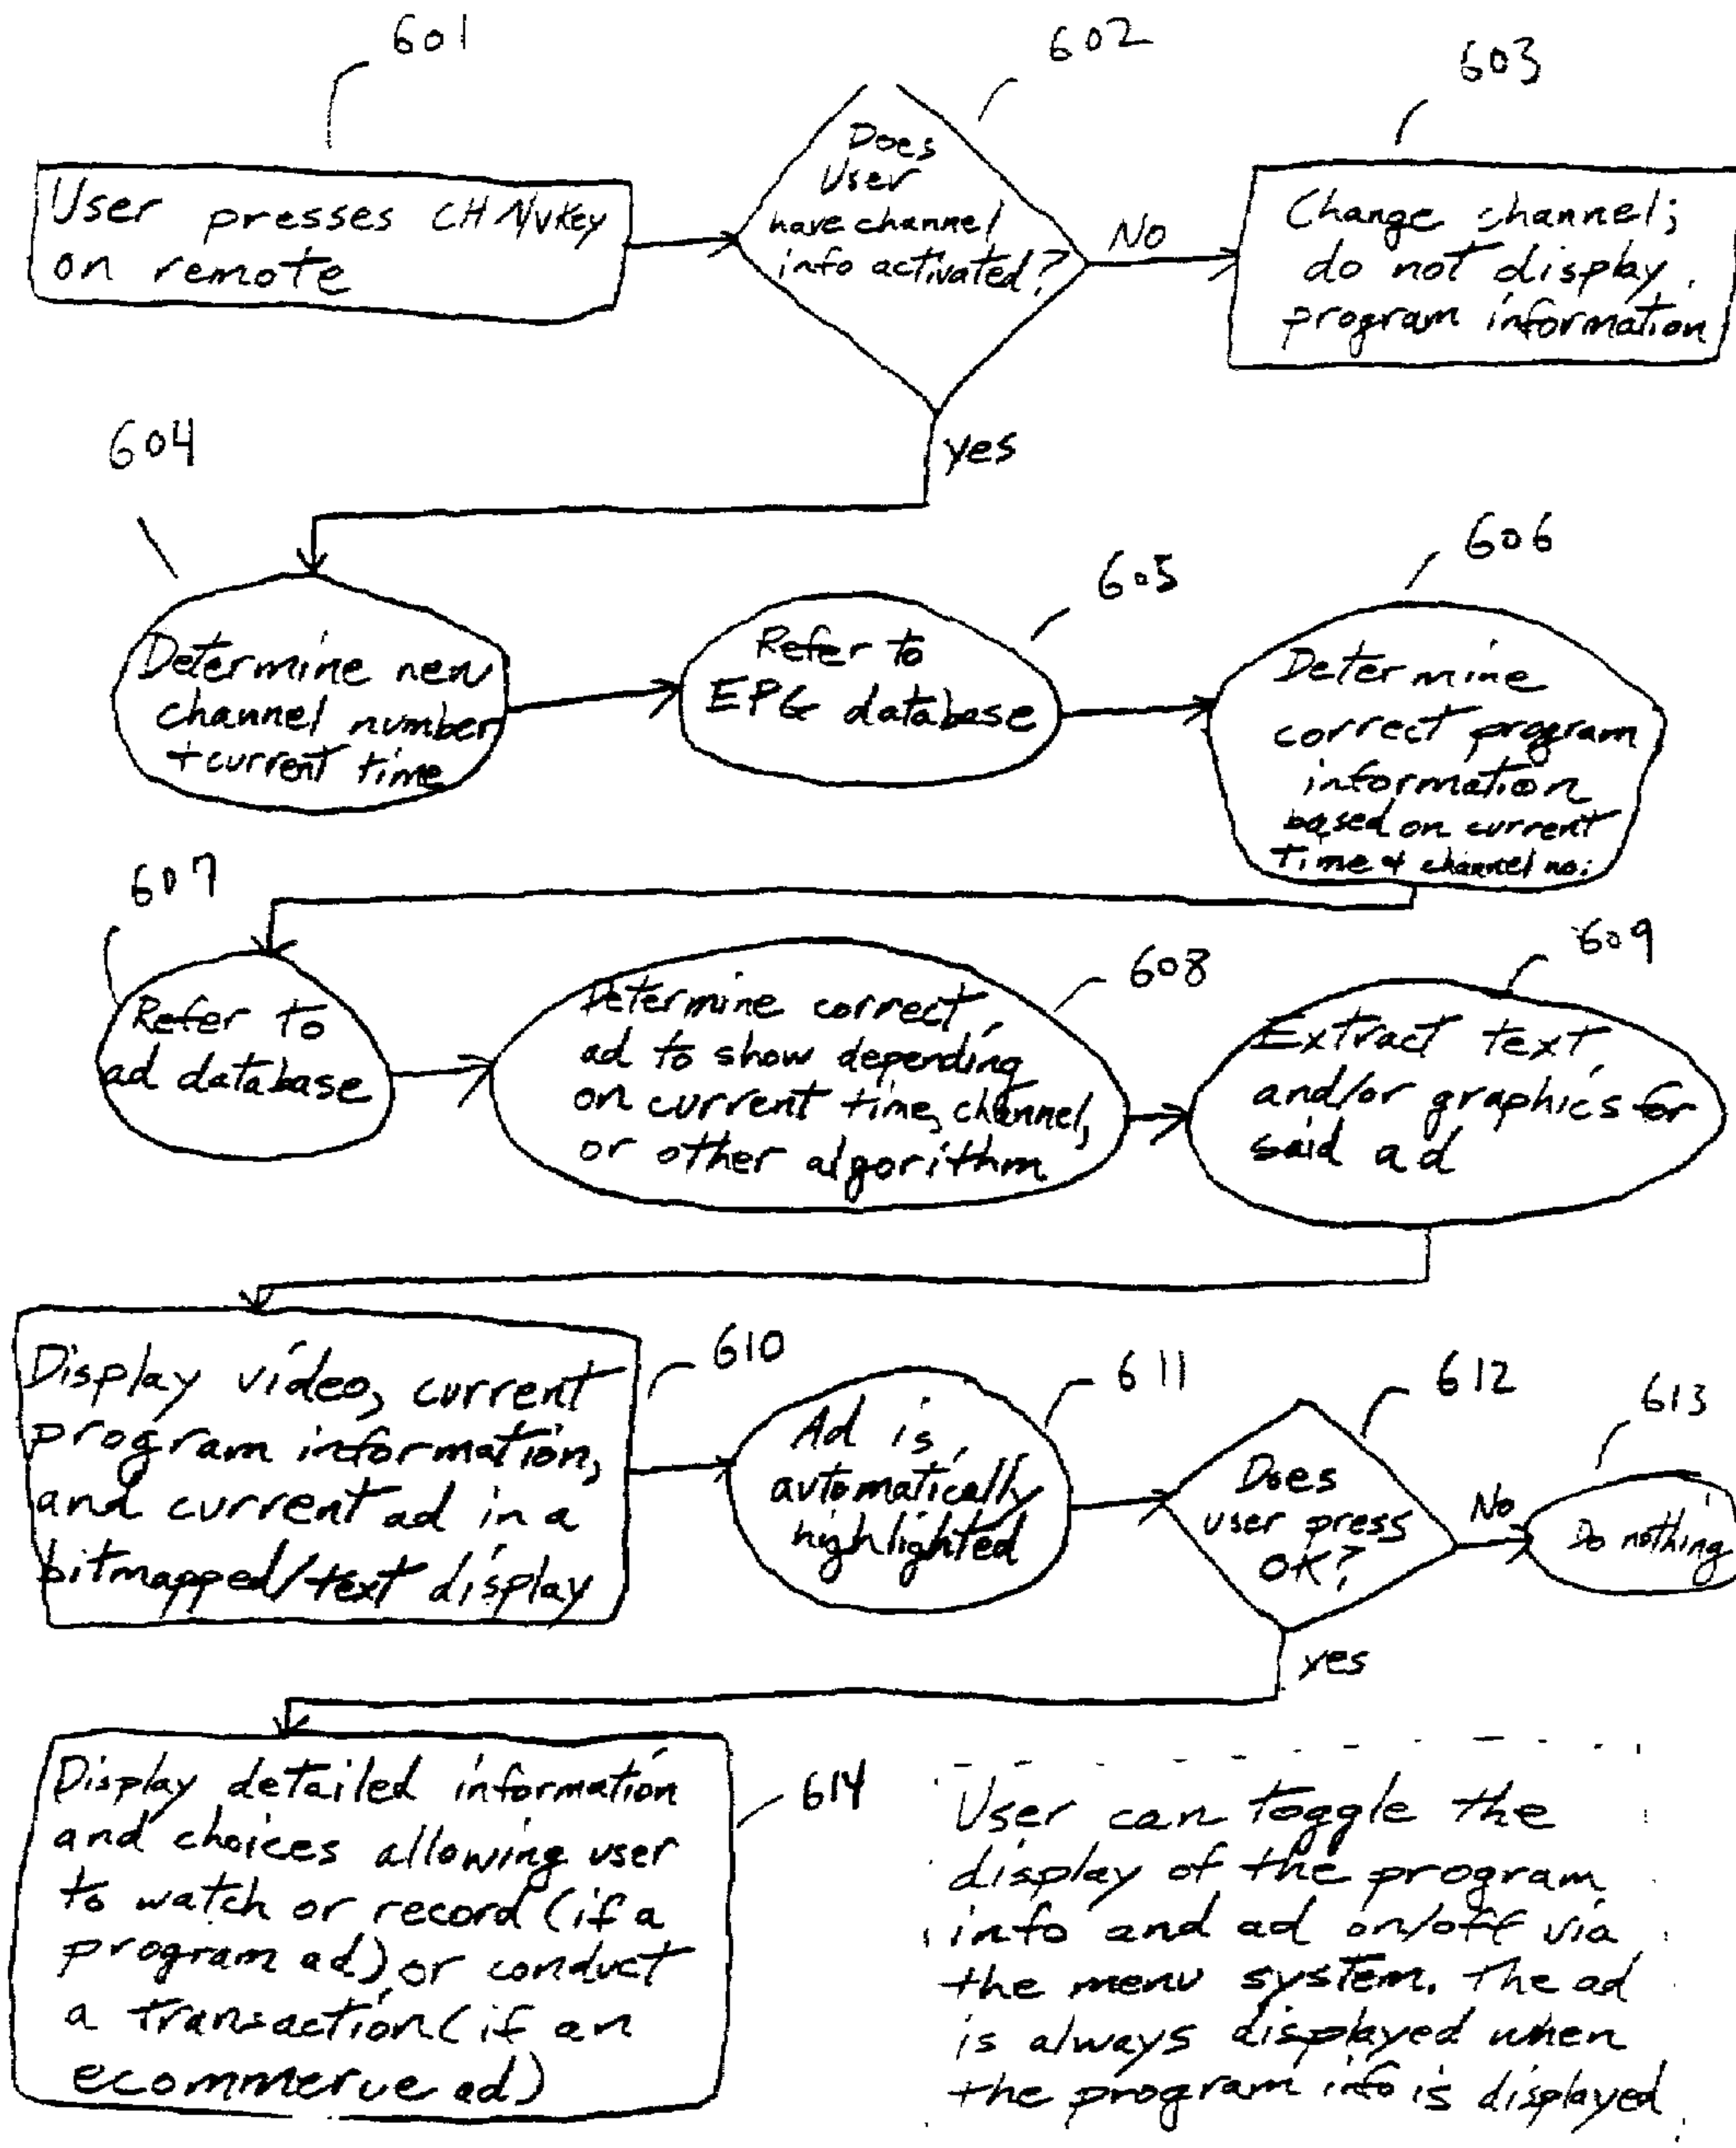 601
602
603
User presses CH ∧/∨ Key
on remote
Does
User
have channel
info activated?
No
Change channel;
do not display
program information
yes
604
605
606
Determine new
channel number
+ current time
Refer to
EPG database
Determine
correct program
information
based on current
time & channel no.
607
608
609
Refer to
ad database
Determine correct
ad to show depending
on current time, channel,
or other algorithm
Extract text
and/or graphics for
said ad
610
611
612
613
Display video, current
program information,
and current ad in a
bitmapped/text display
Ad is
automatically
highlighted
Does
user press
OK?
No
Do nothing
yes
614
Display detailed information
and choices allowing user
to watch or record (if a
program ad), or conduct
a transaction (if an
ecommerve ad)
User can toggle the
display of the program
info and ad on/off via
the menu system. The ad
is always displayed when
the program info is displayed